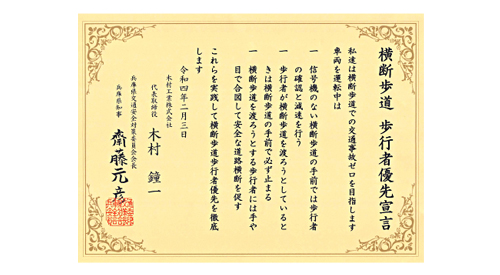 横断歩道 歩行者優先宣言
私達は横断歩道での交通事故ゼロを目指します
車両を運転中は
一 信号機のない横断歩道の手前では歩行者
の確認と減速を行う
一 歩行者が横断歩道を渡ろうとしていると
きは横断歩道の手前で必ず止まる
一 横断歩道を渡ろうとする歩行者には手や
目で合図して安全な道路横断を促す
これらを実践して横断歩道歩行者優先を徹底
します
令和四年二月三日
木村工業株式会社
代表取締役 木村 鐘一
兵庫県交通安全対策委員会会長
兵庫県知事 齋藤元彦